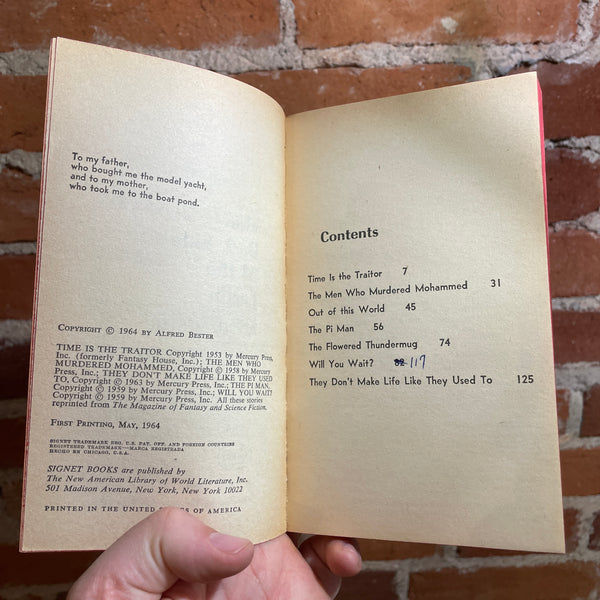 To my father,
who bought me the model yacht,
and to my mother,
who took me to the boat pond.
COPYRIGHT © 1964 BY ALFRED BESTER
TIME IS THE TRAITOR Copyright 1953 by Mercury Press,
Inc. (formerly Fantasy House, Inc.); THE MEN WHO
MURDERED MOHAMMED, Copyright © 1958 by Mercury Press,
Inc.; THEY DON'T MAKE LIFE LIKE THEY USED
TO, Copyright © 1963 by Mercury Press, Inc.; THE PI MAN,
Copyright © 1959 by Mercury Press, Inc.; WILL YOU WAIT?
Copyright © 1959 by Mercury Press, Inc. All these stories
reprinted from The Magazine of Fantasy and Science Fiction.
FIRST PRINTING, MAY, 1964
SIGNET TRADEMARK REG. U.S. PAT. OFF. AND FOREIGN COUNTRIES
REGISTERED TRADEMARK—MARCA REGISTRADA
HECHO EN CHICAGO, U.S.A.
SIGNET BOOKS are published by
The New American Library of World Literature, Inc.
501 Madison Avenue, New York, New York 10022
PRINTED IN THE UNITED STATES OF AMERICA
Contents
Time Is the Traitor 7
The Men Who Murdered Mohammed 31
Out of this World 45
The Pi Man 56
The Flowered Thundermug 74
Will You Wait? 117
They Don't Make Life Like They Used To 125